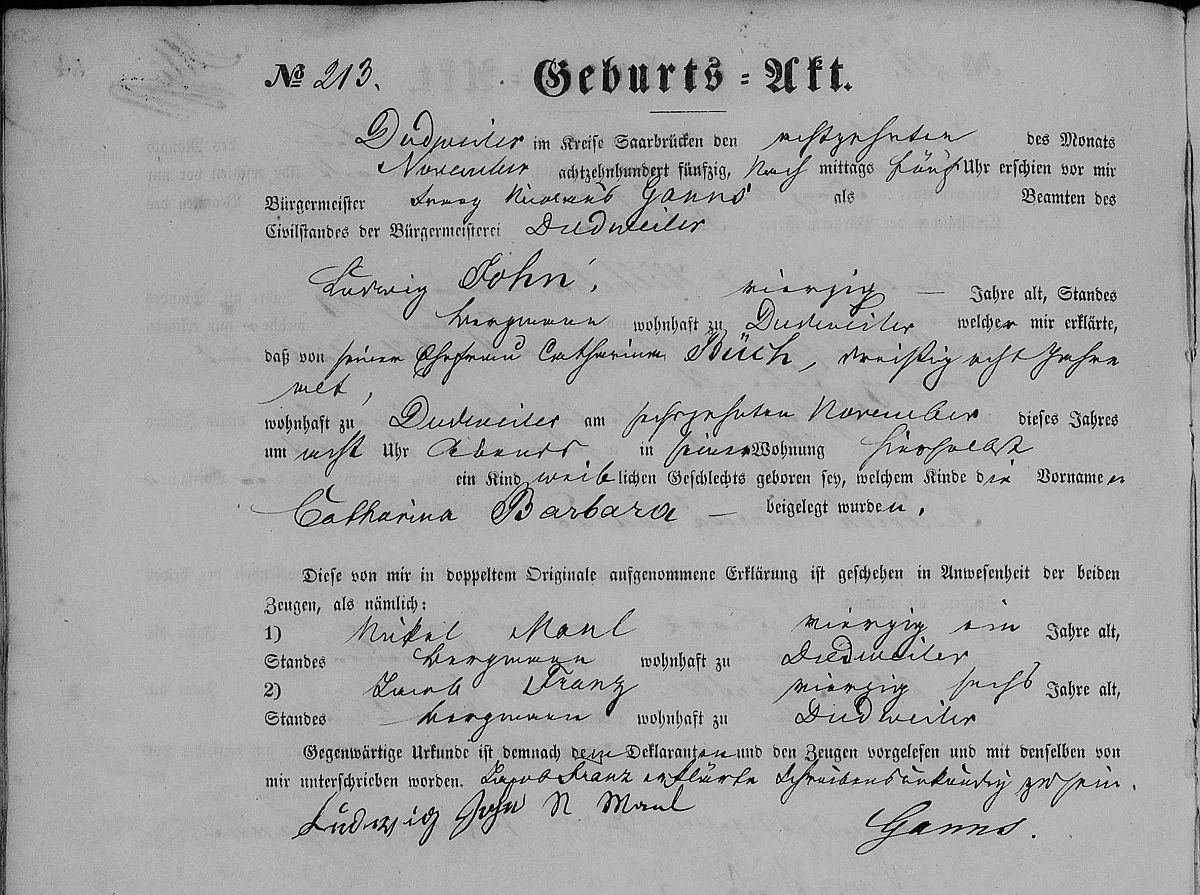 № 213. Geburts-Akt.
Dudweiler im Kreise Saarbrücken den achtzehnten des Monats
November achtzehnhundert fünfzig, Nach mittags fünf Uhr erschien vor mir
Bürgermeister Nicolaus Ganns als Beamten des
Civilstandes der Bürgermeisterei Dudweiler
Ludwig John, vierzig — Jahre alt, Standes
Bergmann wohnhaft zu Dudweiler welcher mir erklärte,
daß von seiner Ehefrau Catharina Büch, dreißig acht Jahre
alt,
wohnhaft zu Dudweiler am sechszehnten November dieses Jahres
um acht Uhr Abends in seiner Wohnung hierselbst
ein Kind weiblichen Geschlechts geboren sey, welchem Kinde die Vornamen
Catharina Barbara — beigelegt wurden.
Diese von mir in doppeltem Originale aufgenommene Erklärung ist geschehen in Anwesenheit der beiden
Zeugen, als nämlich:
1) Nikel Maul vierzig ein Jahre alt,
Standes Bergmann wohnhaft zu Dudweiler
2) Jacob Franz vierzig sechs Jahre alt,
Standes Bergmann wohnhaft zu Dudweiler
Gegenwärtige Urkunde ist demnach dem Deklaranten und den Zeugen vorgelesen und mit denselben von
mir unterschrieben worden. Jacob Franz erklärte Schreibensunkundig zu sein.
Ludwig John N Maul Ganns.